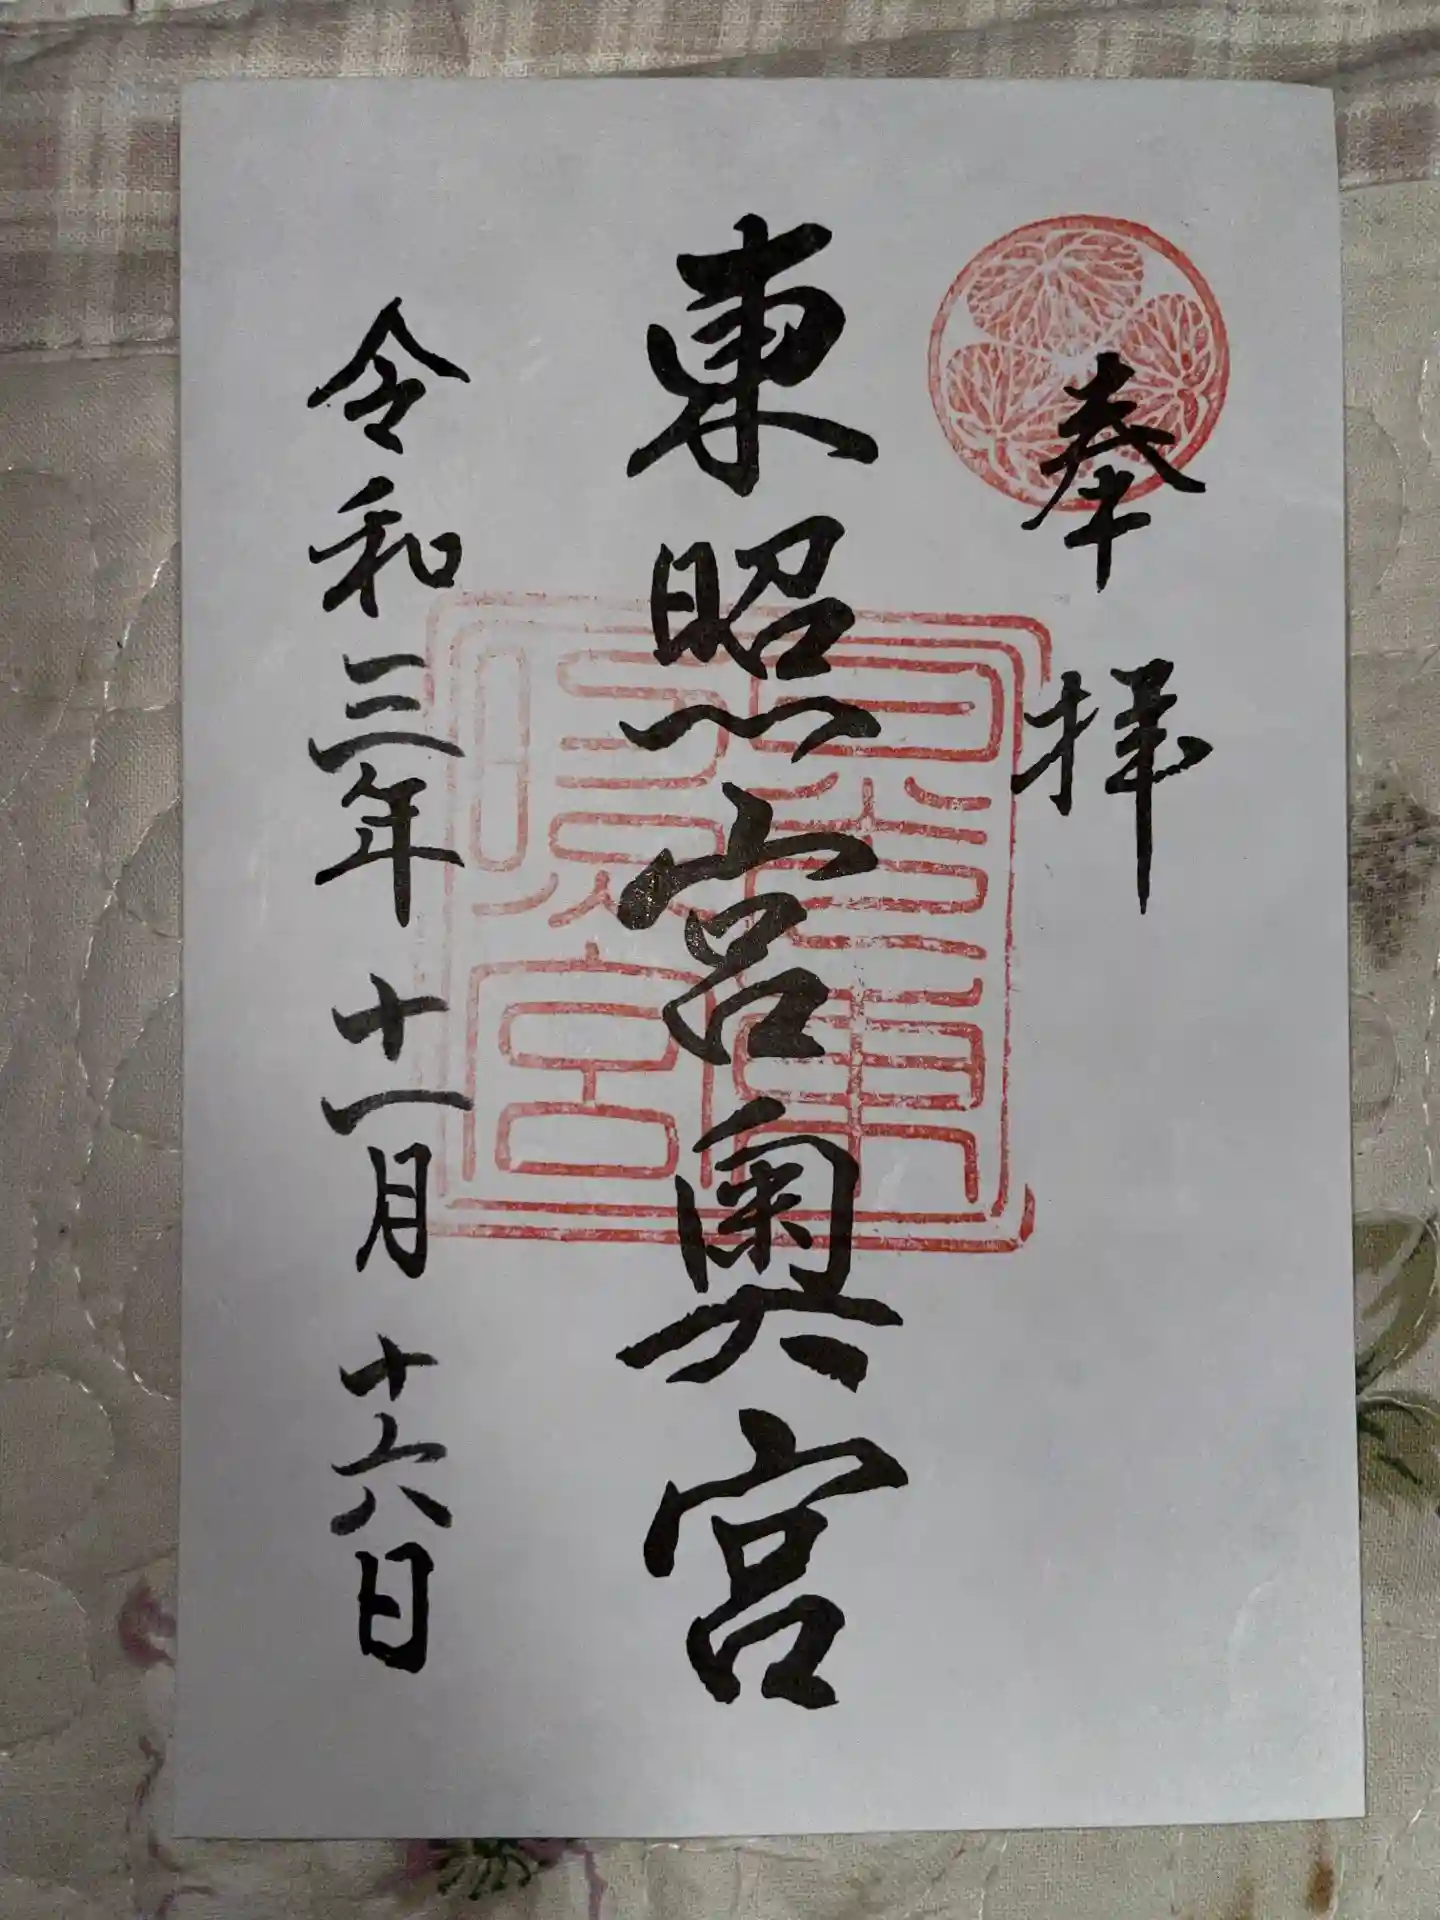 奉拝
東照宮奥宮
令和三年十一月十六日